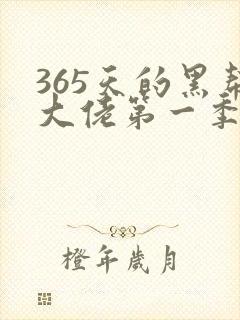 365天的黑帮
大佬第一季
橙年岁月